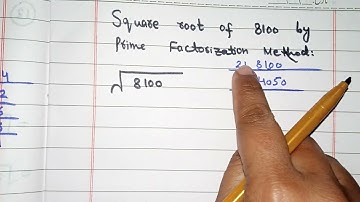 Square root of 8100 by
Prime Factorization Method:
2 8100
√8100
4050
4
2